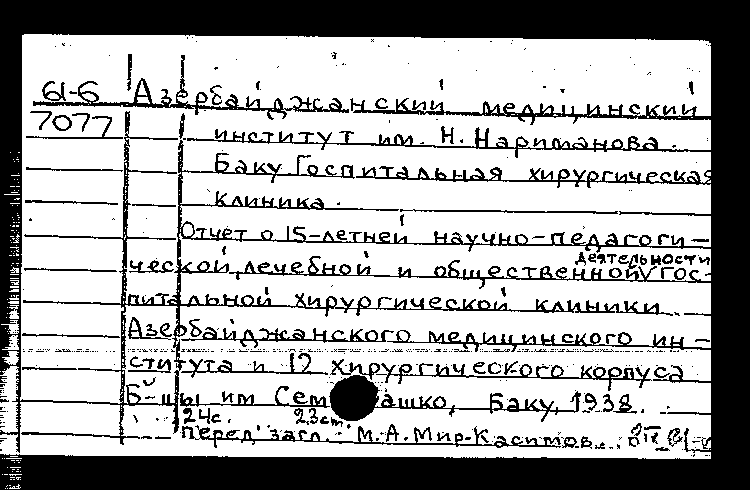 61-6 Азербайджанский медицинский
7077 институт им. Н. Нариманова.
Баку. Госпитальная хирургическая
клиника.
Отчет о 15-летней научно-педагоги-
деятельности
ческой, лечебной и общественной гос-
питальной хирургической клиники
Азербайджанского медицинского ин-
ститута и 12 хирургического корпуса
Б-цы им Сем ашко, Баку, 1938.
24с. 23 cm.
Перед загл.: М.А. Мир-Касимов.